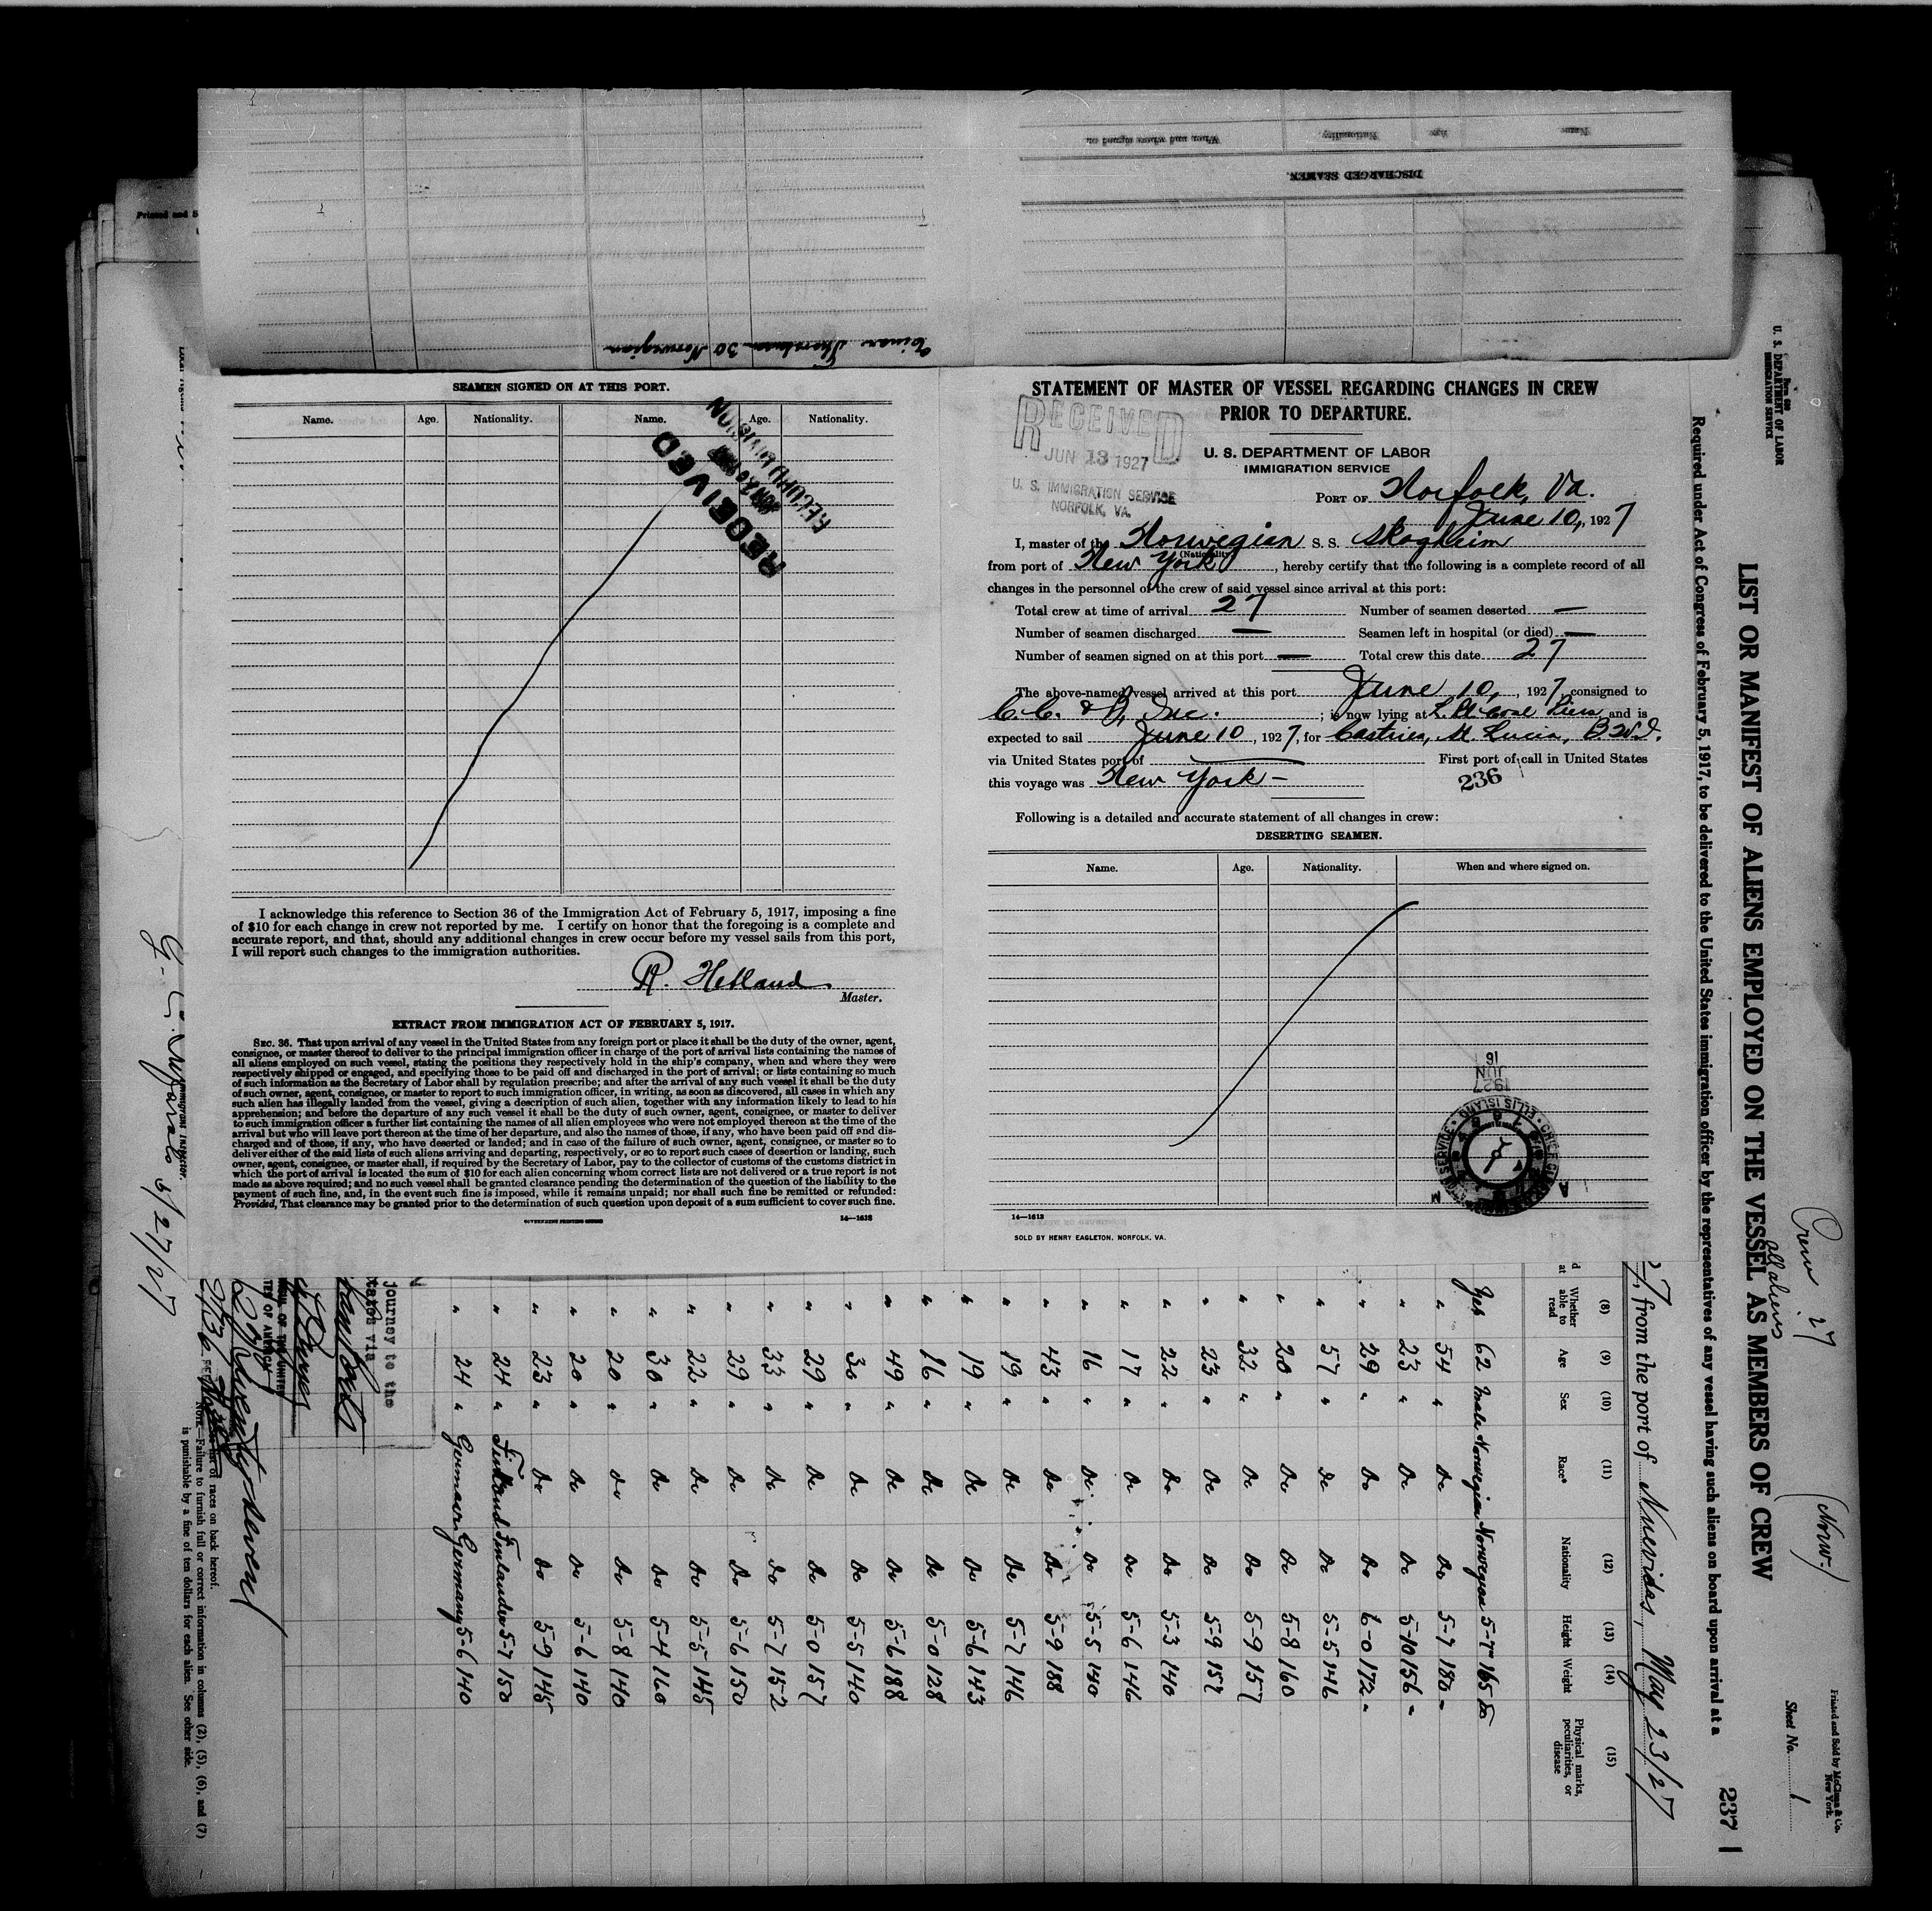 Printed and S
When and where signed on
Nationality
Age
Name
DISCHARGED SEAMEN.
30 Norwegian
SEAMEN SIGNED ON AT THIS PORT.
Name. Age. Nationality. Name. Age. Nationality.
RECEIVED
I acknowledge this reference to Section 36 of the Immigration Act of February 5, 1917, imposing a fine
of $10 for each change in crew not reported by me. I certify on honor that the foregoing is a complete and
accurate report, and that, should any additional changes in crew occur before my vessel sails from this port,
I will report such changes to the immigration authorities.
R. Helland
Master.
EXTRACT FROM IMMIGRATION ACT OF FEBRUARY 5, 1917.
SEC. 36. That upon arrival of any vessel in the United States from any foreign port or place it shall be the duty of the owner, agent,
consignee, or master thereof to deliver to the principal immigration officer in charge of the port of arrival lists containing the names of
all aliens employed on such vessel, stating the positions they respectively hold in the ship's company, when and where they were
respectively shipped or engaged, and specifying those to be paid off and discharged in the port of arrival; or lists containing so much
of such information as the Secretary of Labor shall by regulation prescribe; and after the arrival of any such vessel it shall be the duty
of such owner, agent, consignee, or master to report to such immigration officer, in writing, as soon as discovered, all cases in which any
such alien has illegally landed from the vessel, giving a description of such alien, together with any information likely to lead to his
apprehension; and before the departure of any such vessel it shall be the duty of such owner, agent, consignee, or master to deliver
to such immigration officer a further list containing the names of all alien employees who were not employed thereon at the time of the
arrival but who will leave port thereon at the time of her departure, and also the names of those, if any, who have been paid off and dis-
charged and of those, if any, who have deserted or landed; and in case of the failure of such owner, agent, consignee, or master so to
deliver either of the said lists of such aliens arriving and departing, respectively, or so to report such cases of desertion or landing, such
owner, agent, consignee, or master shall, if required by the Secretary of Labor, pay to the collector of customs of the customs district in
which the port of arrival is located the sum of $10 for each alien concerning whom correct lists are not delivered or a true report is not
made as above required; and no such vessel shall be granted clearance pending the determination of the question of the liability to the
payment of such fine, and, in the event such fine is imposed, while it remains unpaid; nor shall such fine be remitted or refunded:
Provided, That clearance may be granted prior to the determination of such question upon deposit of a sum sufficient to cover such fine.
GOVERNMENT PRINTING OFFICE 14—1613
STATEMENT OF MASTER OF VESSEL REGARDING CHANGES IN CREW
PRIOR TO DEPARTURE.
RECEIVED
JUN 13 1927
U. S. IMMIGRATION SERVICE
NORFOLK, VA.
U. S. DEPARTMENT OF LABOR
IMMIGRATION SERVICE
PORT OF Norfolk, Va.
June 10, 1927
I, master of the Norwegian S. S. Skogheim
(Nationality)
from port of New York, hereby certify that the following is a complete record of all
changes in the personnel of the crew of said vessel since arrival at this port:
Total crew at time of arrival 27 Number of seamen deserted —
Number of seamen discharged — Seamen left in hospital (or died) —
Number of seamen signed on at this port — Total crew this date 27
The above-named vessel arrived at this port June 10, 1927, consigned to
C. C. & B, Inc. ; is now lying at L. Pt. Coal Piers and is
expected to sail June 10, 1927, for Castries, St. Lucia, B.W.I.
via United States port of — First port of call in United States
this voyage was New York —
236
Following is a detailed and accurate statement of all changes in crew:
DESERTING SEAMEN.
Name. Age. Nationality. When and where signed on.
1927
JUN
16
ELLIS ISLAND
14—1613
SOLD BY HENRY EAGLETON, NORFOLK, VA.
Form 689
U. S. DEPARTMENT OF LABOR
IMMIGRATION SERVICE
Crew 27
all aliens
(Norw.)
Printed and Sold by McClean & Co.
New York.
Sheet No. 1
LIST OR MANIFEST OF ALIENS EMPLOYED ON THE VESSEL AS MEMBERS OF CREW
237
Required under Act of Congress of February 5, 1917, to be delivered to the United States immigration officer by the representatives of any vessel having such aliens on board upon arrival at a
7, from the port of Nuevitas, May 23/27
(8) (9) (10) (11) (12) (13) (14) (15)
Whether able to read Age Sex Race* Nationality Height Weight Physical marks, peculiarities, or disease
Yes 62 male Norwegian Norwegian 5-7 165 do
" 54 " Do Do 5-7 180 "
" 23 " Do Do 5-10 156 "
" 29 " Do Do 6-0 172 "
" 57 " Do Do 5-5 146
" 20 " Do Do 5-8 160
" 32 " Do Do 5-9 157
" 23 " Do Do 5-9 157
" 22 " Do Do 5-3 140
" 17 " Do Do 5-6 146
" 16 " Do Do 5-5 140
" 43 " Do Do 5-9 188
" 19 " Do Do 5-7 146
" 19 " Do Do 5-6 143
" 16 " Do Do 5-0 128
" 49 " Do Do 5-6 188
" 30 " Do Do 5-5 140
" 29 " Do Do 5-0 157
" 33 " Do Do 5-7 152
" 29 " Do Do 5-6 150
" 22 " Do Do 5-5 145
" 30 " Do Do 5-4 160
" 20 " Do Do 5-8 140
" 20 " Do Do 5-6 140
" 23 " Do Do 5-9 145
" 24 " Finland Finlander 5-7 150
" 24 " German Germany 5-6 140
journey to the
via
Twenty-seven
of races on back hereof.
NOTE.—Failure to furnish full or correct information in columns (2), (5), (6), and (7)
is punishable by a fine of ten dollars for each alien. See other side.
Immigrant Inspector.
6/27/27